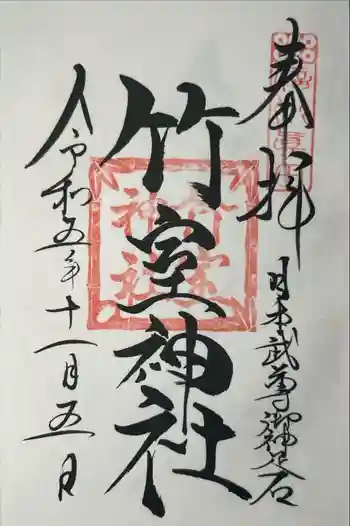 奉拝
日本武尊御神足石
竹室神社
令和五年十一月五日
竹室神社